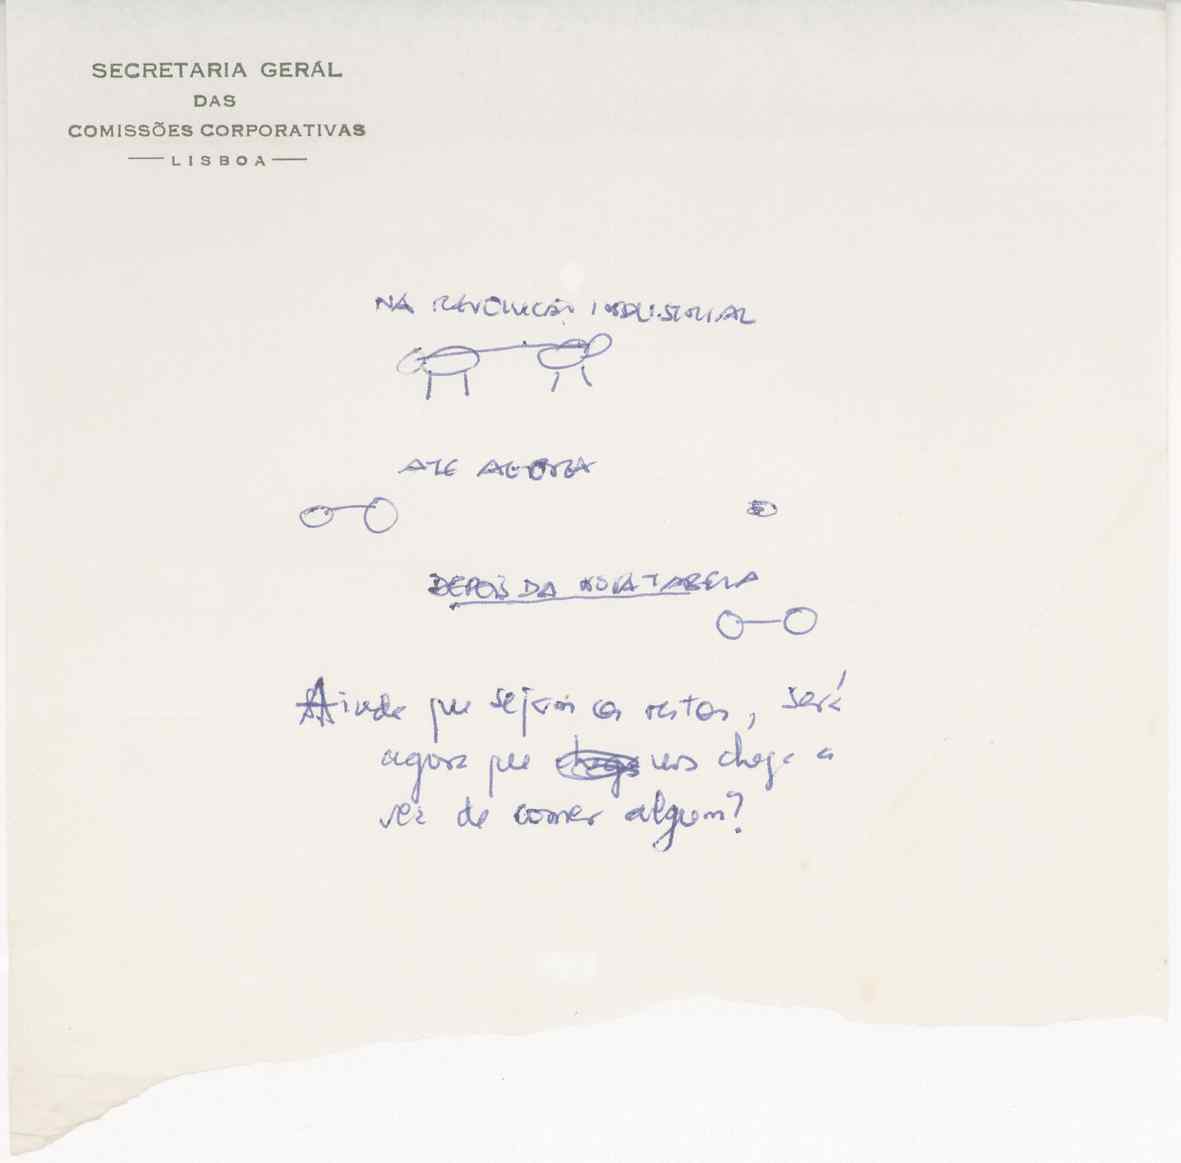 SECRETARIA GERÁL
DAS
COMISSÕES CORPORATIVAS
LISBOA
NA REVOLUÇÃO INDUSTRIAL
ATE AGORA
DEPOIS DA NOVA TABELA
Ainda que sejam os restos, será
agora que nos chega a
vez de comer algum?